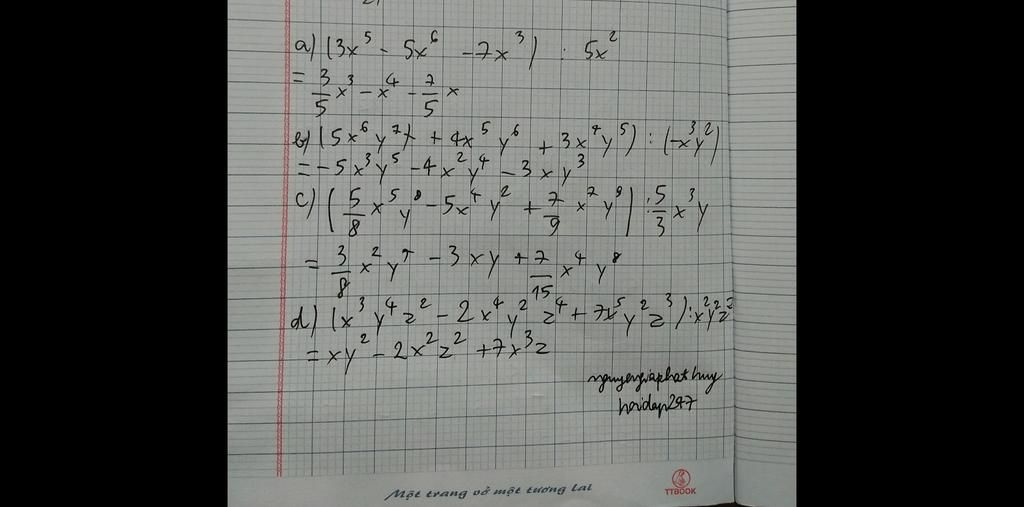 a) (3x⁵ - 5x⁶ - 7x³) : 5x²
= 3/5 x³ - x⁴ - 7/5 x
b) (5x⁶y⁷ + 4x⁵y⁶ + 3x⁴y⁵) : (-x³y²)
= -5x³y⁵ - 4x²y⁴ - 3xy³
c) (5/8 x⁵y⁸ - 5x⁴y² + 7/9 x⁷y⁹) : 5/3 x³y
= 3/8 x²y⁷ - 3xy + 7/15 x⁴y⁸
d) (x³y⁴z² - 2x⁴y²z⁴ + 7x⁵y²z³) : x²y²z²
= xy² - 2x²z² + 7x³z
nguyengiaphathuy
hoidap247
Một trang vở một tương lai
TTBOOK